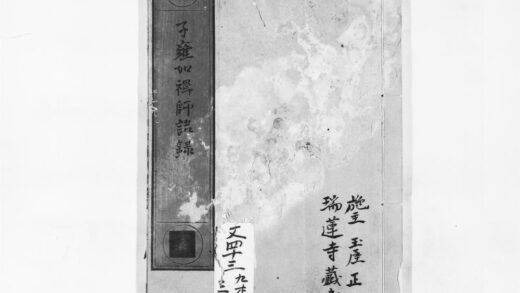 子雍如禪師語錄
施主 玉屋 正
瑞蓮寺藏
文四十三